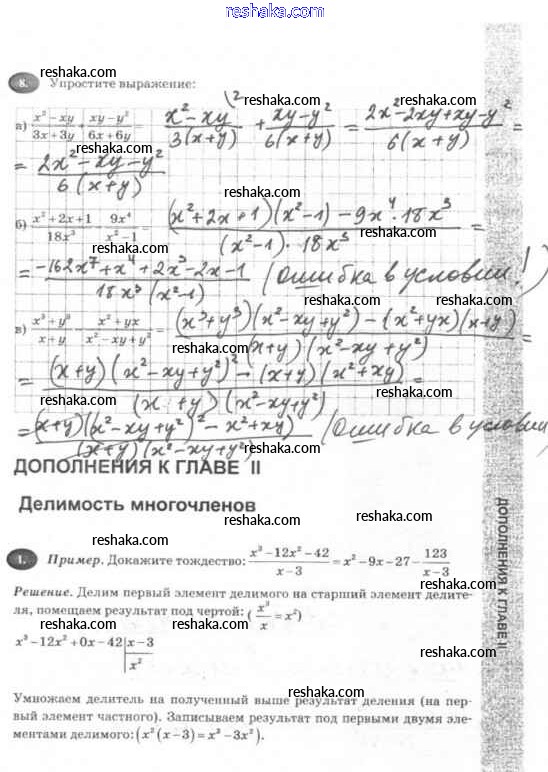 www.reshaka.com
reshaka.com
8. Упростите выражение:
reshaka.com
а) (x² – xy)/(3x + 3y) + (xy – y²)/(6x + 6y) = (x² – xy)\²/3(x+y) + (xy – y²)/6(x+y) = (2x² – 2xy + xy – y²)/6(x+y) =
reshaka.com reshaka.com
= (2x² – xy – y²)/6(x+y)
reshaka.com reshaka.com
б) (x² + 2x + 1)/18x³ – 9x⁴/(x² – 1) = ((x² + 2x + 1)(x² – 1) – 9x⁴ · 18x³)/((x² – 1) · 18x³) =
reshaka.com reshaka.com
= (–162x⁷ + x⁴ + 2x³ – 2x – 1)/18x³(x² – 1) (ошибка в условии!)
reshaka.com reshaka.com
в) (x³ + y³)/(x + y) – (x² + yx)/(x² – xy + y²) = ((x³ + y³)(x² – xy + y²) – (x² + yx)(x+y))/((x+y)(x² – xy + y²)) =
reshaka.com reshaka.com
= ((x+y)(x² – xy + y²)² – (x+y)(x² + xy))/((x+y)(x² – xy + y²)) =
reshaka.com reshaka.com
= ((x+y)((x² – xy + y²)² – x² + xy))/((x+y)(x² – xy + y²)) (ошибка в условии
reshaka.com reshaka.com
ДОПОЛНЕНИЯ К ГЛАВЕ II
Делимость многочленов
reshaka.com reshaka.com
1. Пример. Докажите тождество: (x³ – 12x² – 42)/(x – 3) = x² – 9x – 27 – 123/(x – 3)
reshaka.com reshaka.com
Решение. Делим первый элемент делимого на старший элемент делите-
ля, помещаем результат под чертой: (x³/x = x²)
reshaka.com reshaka.com
x³ – 12x² + 0x – 42 | x – 3
x²
reshaka.com reshaka.com
Умножаем делитель на полученный выше результат деления (на пер-
вый элемент частного). Записываем результат под первыми двумя эле-
ментами делимого: (x²(x – 3) = x³ – 3x²).
reshaka.com
ДОПОЛНЕНИЯ К ГЛАВЕ II